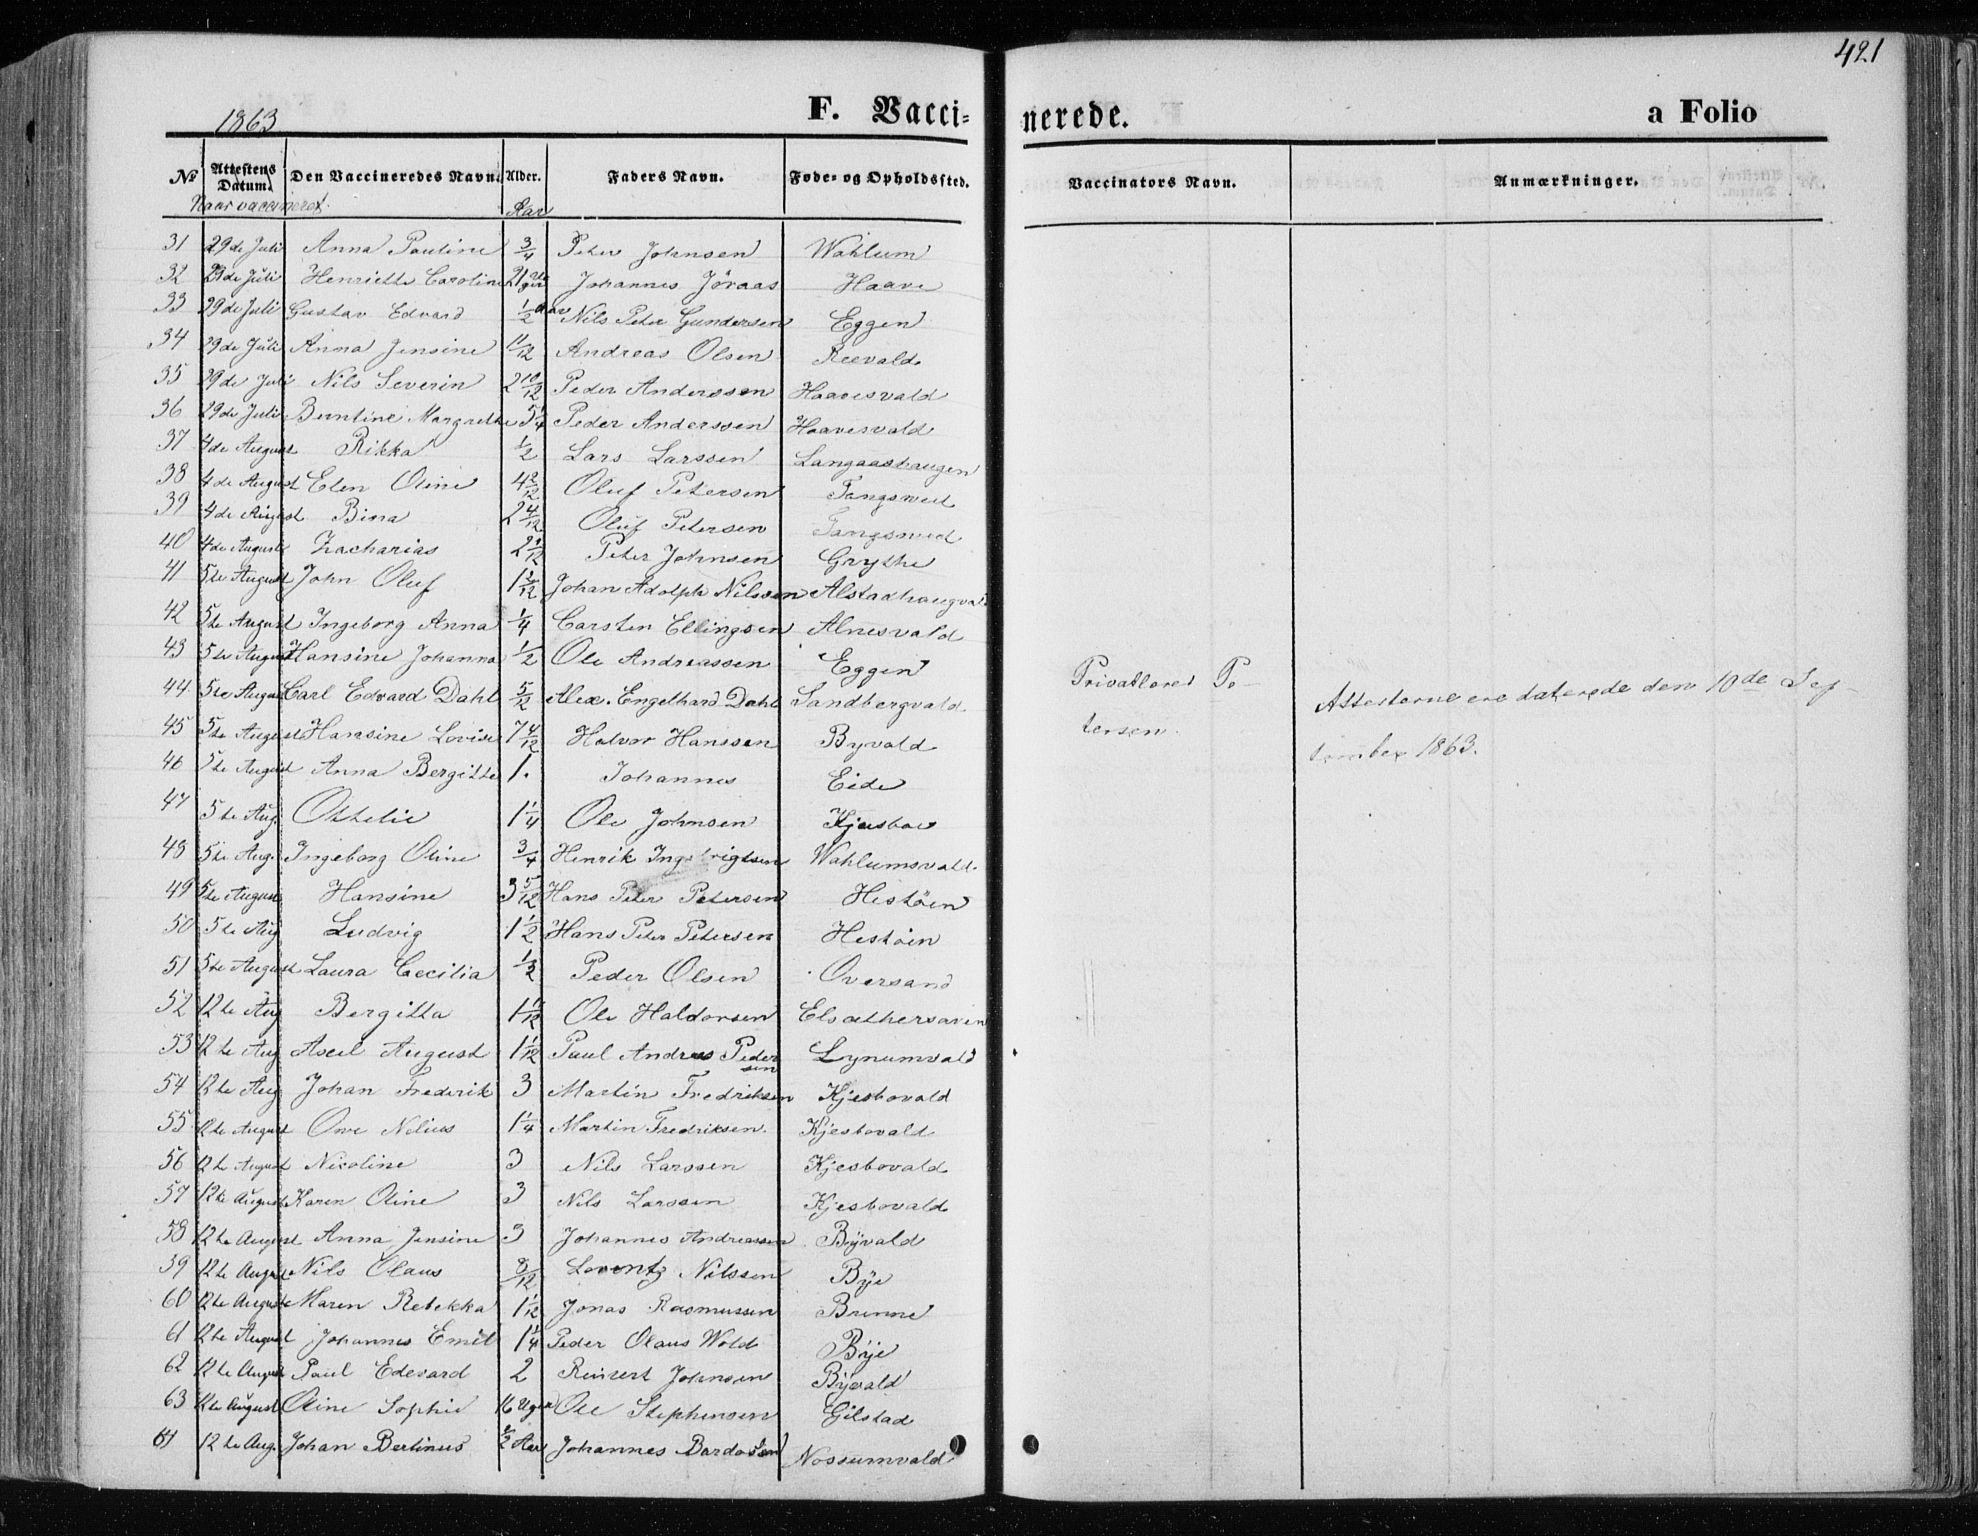 421
1863
F. Vaccinerede. a Folio
No Attestens Datum. Den Vaccineredes Navn. Alder. Faders Navn. Føde- og Opholdssted. Vaccinators Navn. Anmærkninger.
Naar vaccineret. Aar
31 29de Juli Anna Pauline 3/4 Peter Johnsen Wahlum
32 29de Juli Henriette Caroline 21 Uger Johannes Jöraas Haave
33 29de Juli Gustav Edvard 1/2 Aar Nils Peter Gundersen Eggen
34 29de Juli Anna Jensine 11/12 Andreas Olsen Reevald
35 29de Juli Nils Severin 2 10/12 Peder Anderssen Haavesvald
36 29de Juli Berntine Margrethe 5 1/4 Peder Anderssen Haavesvald
37 4de August Rikka 1/2 Lars Larssen Langaashaugen
38 4de August Elen Oline 4 2/12 Oluf Petersen
39 4de August Bina 2 4/12 Oluf Petersen
40 4de August Zacharias 2 1/12 Peter Johnsen Grythe
41 5te August John Oluf Johan Adolph Nilssen Alstadhaugvald
42 5te August Ingeborg Anna 1/4 Carsten Ellingsen Alnesvald
43 5te August Hansine Johanna 1/2 Ole Andreassen Eggen
44 5te August Carl Edvard Dahl 5/12 Alex. Engelhard Dahl Sandbergvald
Privatlærer Pe-
tersen.
Attesterne ere daterede den 10de Sep-
tember 1863.
45 5te August Hansine Lovise 7 4/12 Halvor Hanssen Byvald
46 5te August Anna Bergitte 1. Johannes Eide
47 5te Aug. Othelie 1 1/4 Ole Johnsen Kjesboe
48 5te Aug. Ingeborg Oline 3/4 Henrik Ingebrigtsen Wahlumsvald
49 5te August Hansine 3 5/12 Hans Peter Petersen Hestöen
50 5te Aug Ludvig 1 1/2 Hans Peter Petersen Hestöen
51 5te August Laura Cecilia 1/2 Peder Olsen Oversand
52 12te Aug Bergitta 1 1/12 Ole Haldorsen
53 12te Aug Axel August 1 1/12 Paul Andreas Pedersen Lynumvald
54 12te Aug Johan Frederik 3 Martin Fredriksen Kjesbovald
55 12te August Ove Nelius 1 1/4 Martin Fredriksen. Kjesbovald
56 12te August Nicoline 3 Nils Larssen Kjesbovald
57 12te August Karen Oline 3 Nils Larssen Kjesbovald
58 12te August Anna Jensine 3 Johannes Andreassen Byvald
59 12te August Nils Olaus 8/12 Lorentz Nilssen Bye
60 12te August Maren Rebekka 1 1/2 Jonas Rasmussen Brenne
61 12te August Johannes Emil 1 1/4 Peder Olaus Wold Bye
62 12te August Paul Edevard 2 Reinert Johnsen Byvald
63 12te August Oline Sophie 16 Uger Ole Stephensen Gilstad
64 12te Aug. Johan Bertinus 1/2 Aar Johannes Bardosen Nossumvald